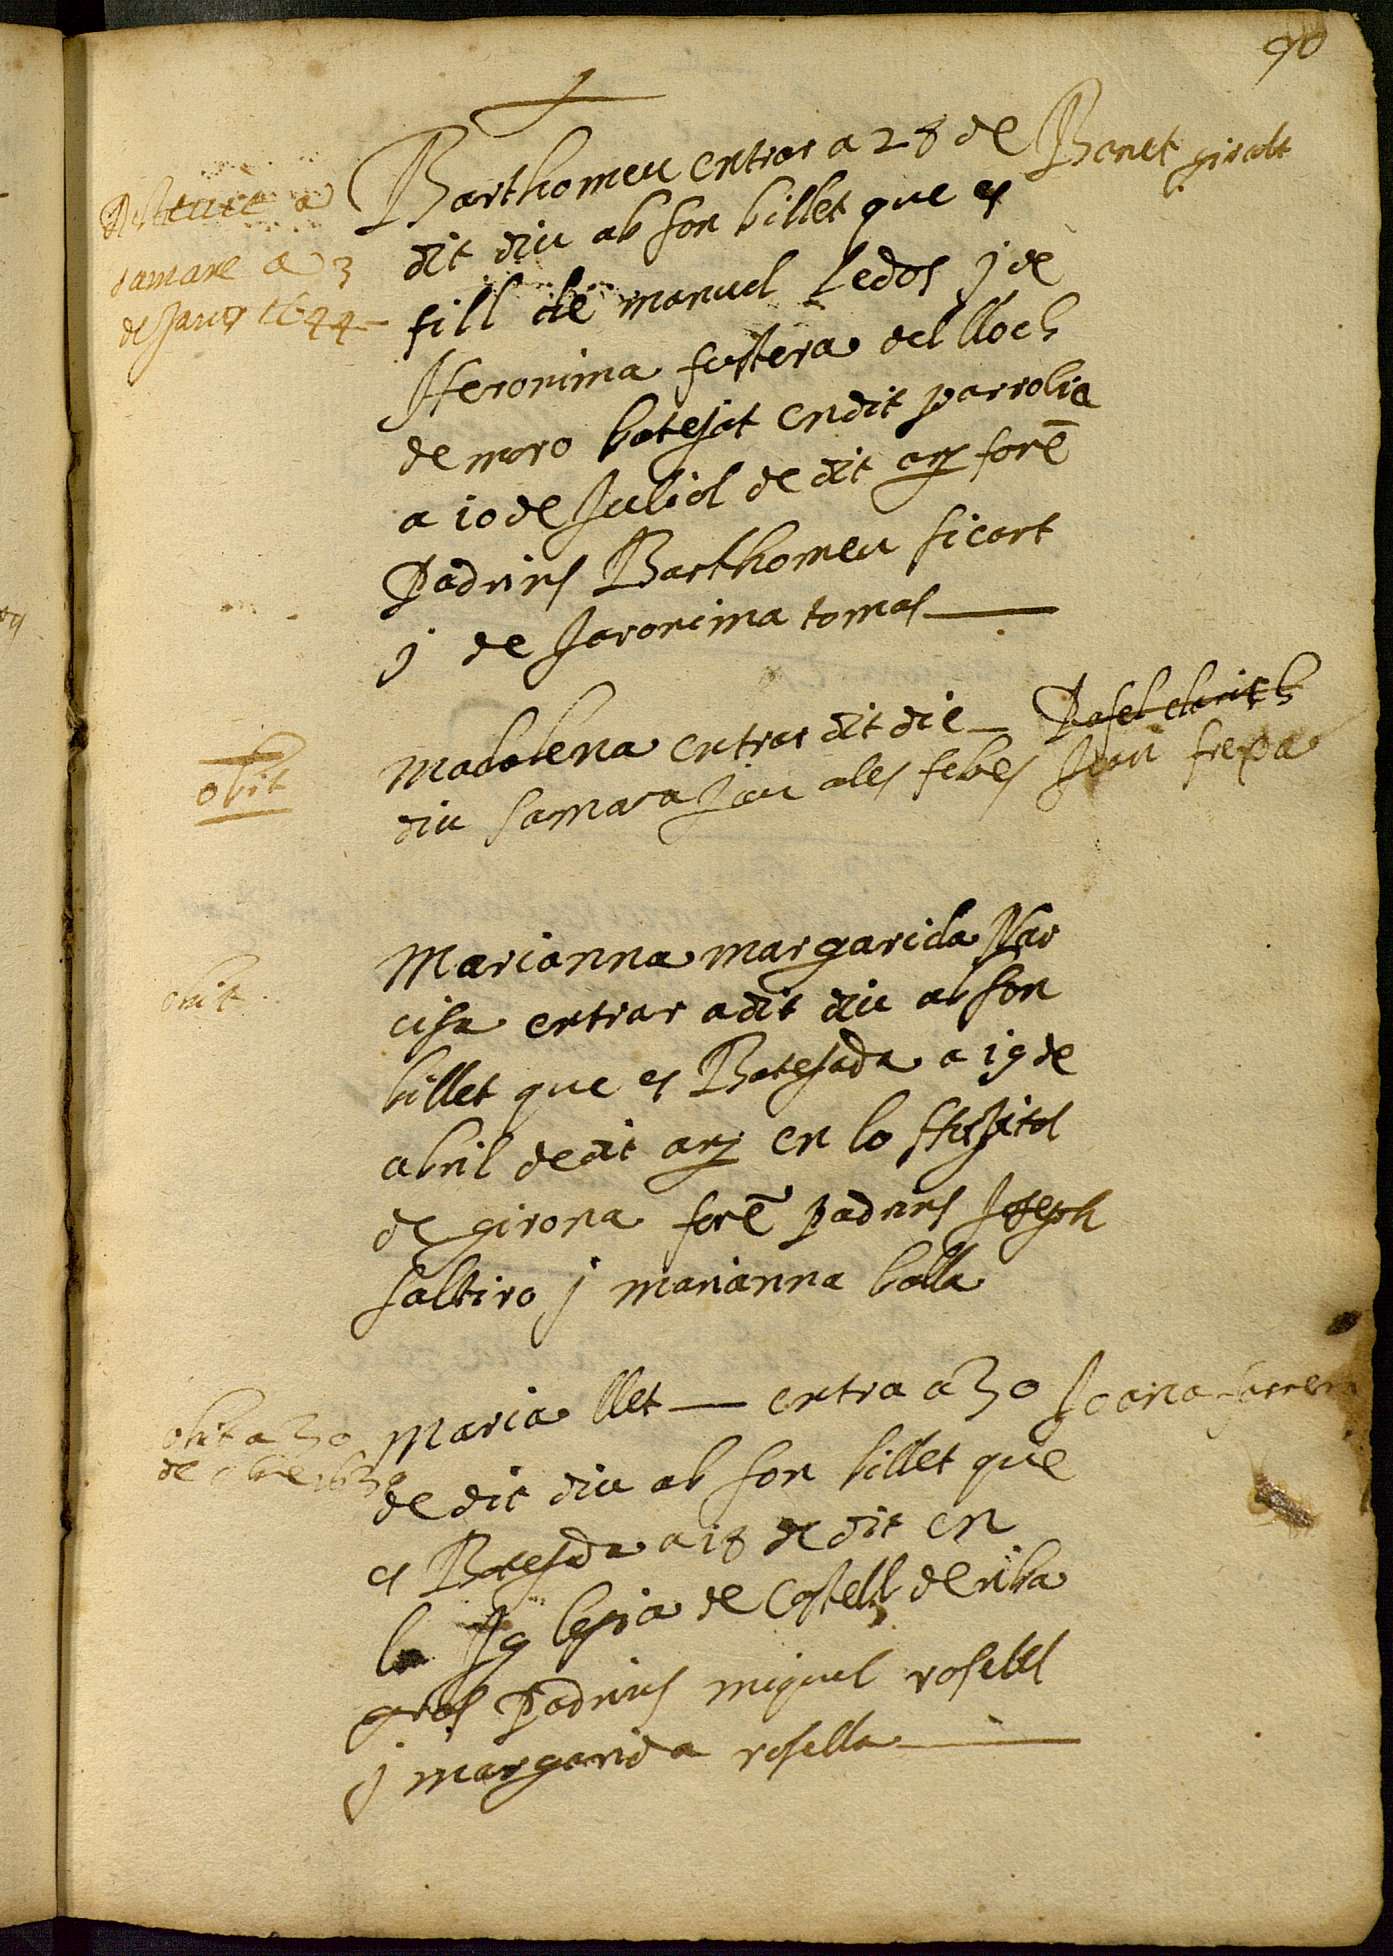 90
Barthomeu entrar a 28 de Benet giralt
dit diu ab son billet que es
fill de manuel Ledos j de
Hieronima fustera del lloch
de moro batejat en dit parrolia
a 10 de Juliol de dit anj forē
Padrins Barthomeu sicart
j de Jaronima tomas
a
samare a 3
de Janer 1644
Madalena entrar dit die Rafel clarich
diu samara jau a les febres Joan frexa
obit
Marianna margarida Nar
cisa entrar a dit diu ab son
billet que es Batejada a 19 de
abril de dit anj en lo Hospitol
de girona forē padrins Joseph
saltiro j marianna balla
obit
Maria llet entra a 30 Joana
de dit diu ab son billet que
es Batejada a 18 de dit en
la Iglesia de Castell de riba
gros Padrins miquel rosell
j margarida rosella
obit a 30
de